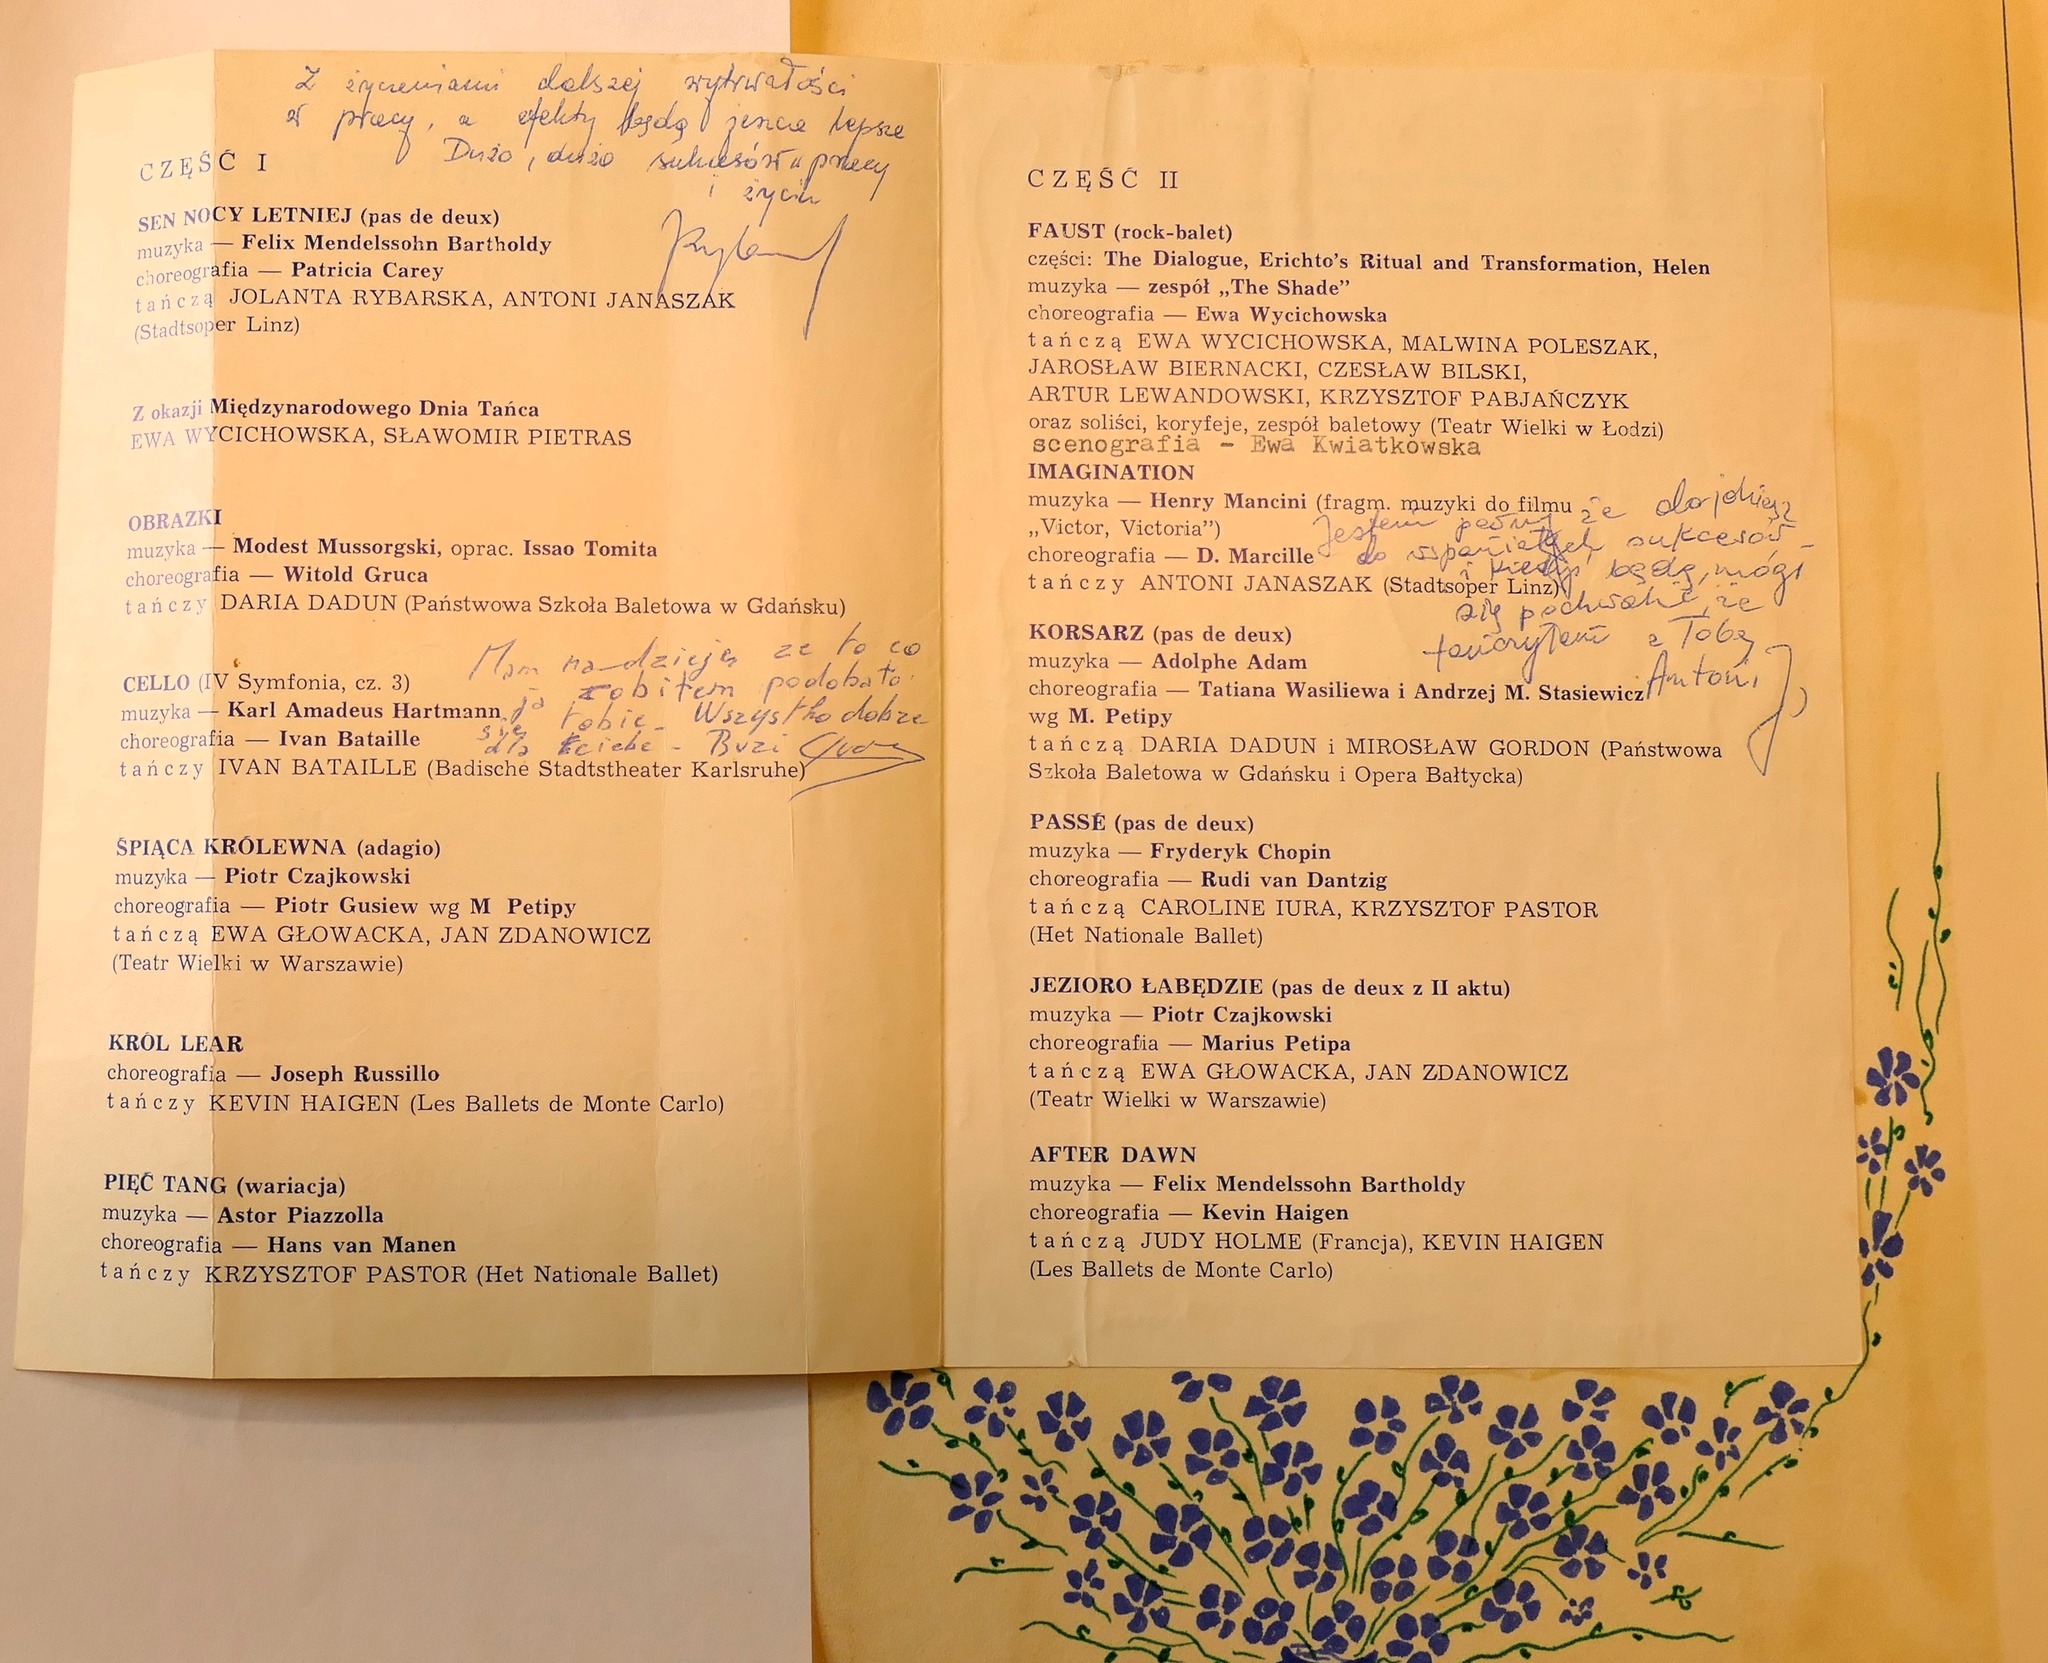 Z życzeniami dalszej wytrwałości
w pracy, a efekty będą jeszcze lepsze
Dużo, dużo sukcesów w pracy
i życiu
CZĘŚĆ I
SEN NOCY LETNIEJ (pas de deux)
muzyka — Felix Mendelssohn Bartholdy
choreografia — Patricia Carey
tańczą JOLANTA RYBARSKA, ANTONI JANASZAK
(Stadtsoper Linz)
Z okazji Międzynarodowego Dnia Tańca
EWA WYCICHOWSKA, SŁAWOMIR PIETRAS
OBRAZKI
muzyka — Modest Mussorgski, oprac. Issao Tomita
choreografia — Witold Gruca
tańczy DARIA DADUN (Państwowa Szkoła Baletowa w Gdańsku)
Mam nadzieję ze to co
ja robiłem podobało
się tobie. Wszystko dobre
dla ciebie - Buzi
CELLO (IV Symfonia, cz. 3)
muzyka — Karl Amadeus Hartmann
choreografia — Ivan Bataille
tańczy IVAN BATAILLE (Badische Stadtstheater Karlsruhe)
ŚPIĄCA KRÓLEWNA (adagio)
muzyka — Piotr Czajkowski
choreografia — Piotr Gusiew wg M Petipy
tańczą EWA GŁOWACKA, JAN ZDANOWICZ
(Teatr Wielki w Warszawie)
KRÓL LEAR
choreografia — Joseph Russillo
tańczy KEVIN HAIGEN (Les Ballets de Monte Carlo)
PIĘĆ TANG (wariacja)
muzyka — Astor Piazzolla
choreografia — Hans van Manen
tańczy KRZYSZTOF PASTOR (Het Nationale Ballet)
CZĘŚĆ II
FAUST (rock-balet)
części: The Dialogue, Erichto's Ritual and Transformation, Helen
muzyka — zespół „The Shade"
choreografia — Ewa Wycichowska
tańczą EWA WYCICHOWSKA, MALWINA POLESZAK,
JAROSŁAW BIERNACKI, CZESŁAW BILSKI,
ARTUR LEWANDOWSKI, KRZYSZTOF PABJAŃCZYK
oraz soliści, koryfeje, zespół baletowy (Teatr Wielki w Łodzi)
scenografia - Ewa Kwiatkowska
IMAGINATION
muzyka — Henry Mancini (fragm. muzyki do filmu
„Victor, Victoria")
choreografia — D. Marcille
tańczy ANTONI JANASZAK (Stadtsoper Linz)
Jestem pewny że dojdziesz
do wspaniałych sukcesów
i kiedyś będę mógł
się pochwalić, że
tańczyłem z Tobą
Antoni J
KORSARZ (pas de deux)
muzyka — Adolphe Adam
choreografia — Tatiana Wasiliewa i Andrzej M. Stasiewicz
wg M. Petipy
tańczą DARIA DADUN i MIROSŁAW GORDON (Państwowa
Szkoła Baletowa w Gdańsku i Opera Bałtycka)
PASSÉ (pas de deux)
muzyka — Fryderyk Chopin
choreografia — Rudi van Dantzig
tańczą CAROLINE IURA, KRZYSZTOF PASTOR
(Het Nationale Ballet)
JEZIORO ŁABĘDZIE (pas de deux z II aktu)
muzyka — Piotr Czajkowski
choreografia — Marius Petipa
tańczą EWA GŁOWACKA, JAN ZDANOWICZ
(Teatr Wielki w Warszawie)
AFTER DAWN
muzyka — Felix Mendelssohn Bartholdy
choreografia — Kevin Haigen
tańczą JUDY HOLME (Francja), KEVIN HAIGEN
(Les Ballets de Monte Carlo)